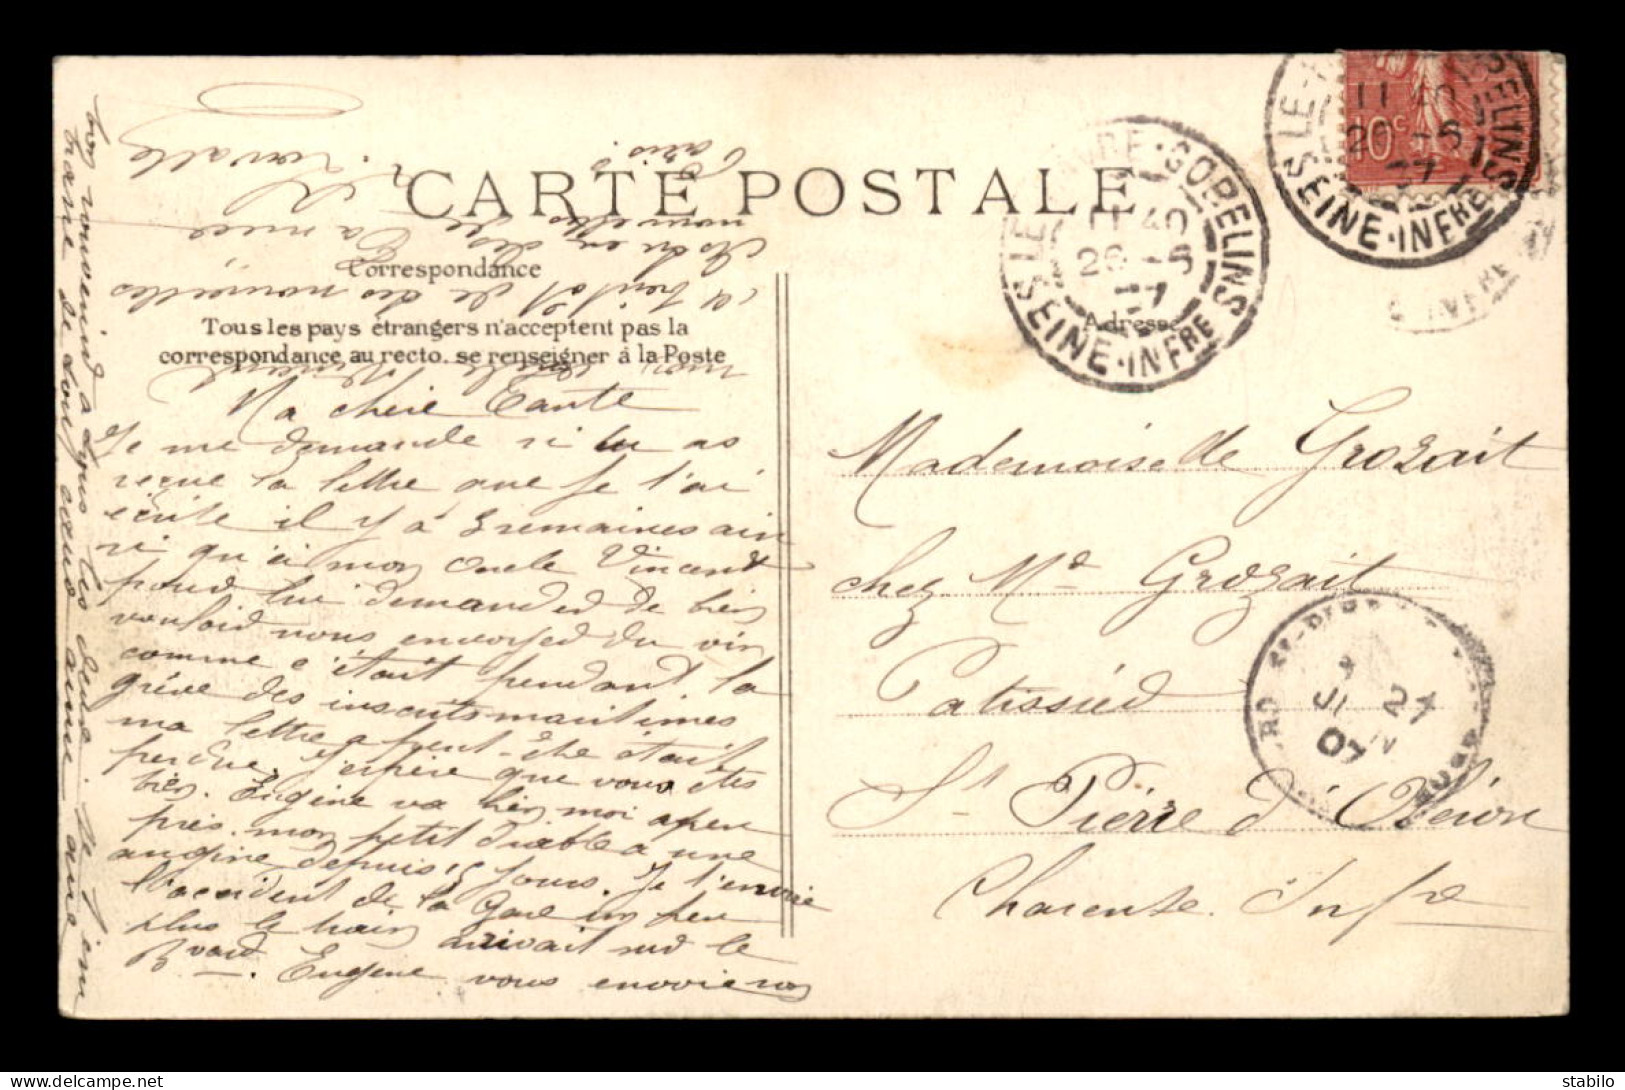 CARTE POSTALE
Correspondance
Tous les pays étrangers n'acceptent pas la
correspondance au recto. se renseigner à la Poste
Adresse
Ma chère Tante
Je me demande si tu as
reçue la lettre que Je t'ai
écrite il y à 3 semaines ain
si qu'à mon Oncle Vincent
pour lui demander de bien
vouloir nous envoyer du vin
comme c'était pendant la
grève des inscrits maritimes
ma lettre a peut-être était
perdue. J'espère que vous êtes
bien. Eugène va bien moi a peu
près. mon petit diable a une
angine depuis 15 jours. Je t'envoie
l'accident de la Gare un peu
plus le train arrivait sur le
Bvard. Eugène vous envoie
mon
a bientôt de des nouvelles
nouvelles de
bon souvenir a tous les deux. Je t'em
de tout coeur
Mademoiselle Grozait
chez Md Grozait
Patissier
St Pierre d'Oléron
Charente Infre
LE HAVRE·GOBELINS
11 40
20 -6
07
SEINE·INFRE
10c
LE
GOBELINS
11 40
20 -6
SEINE·INFRE
JUIN
07
stabilo